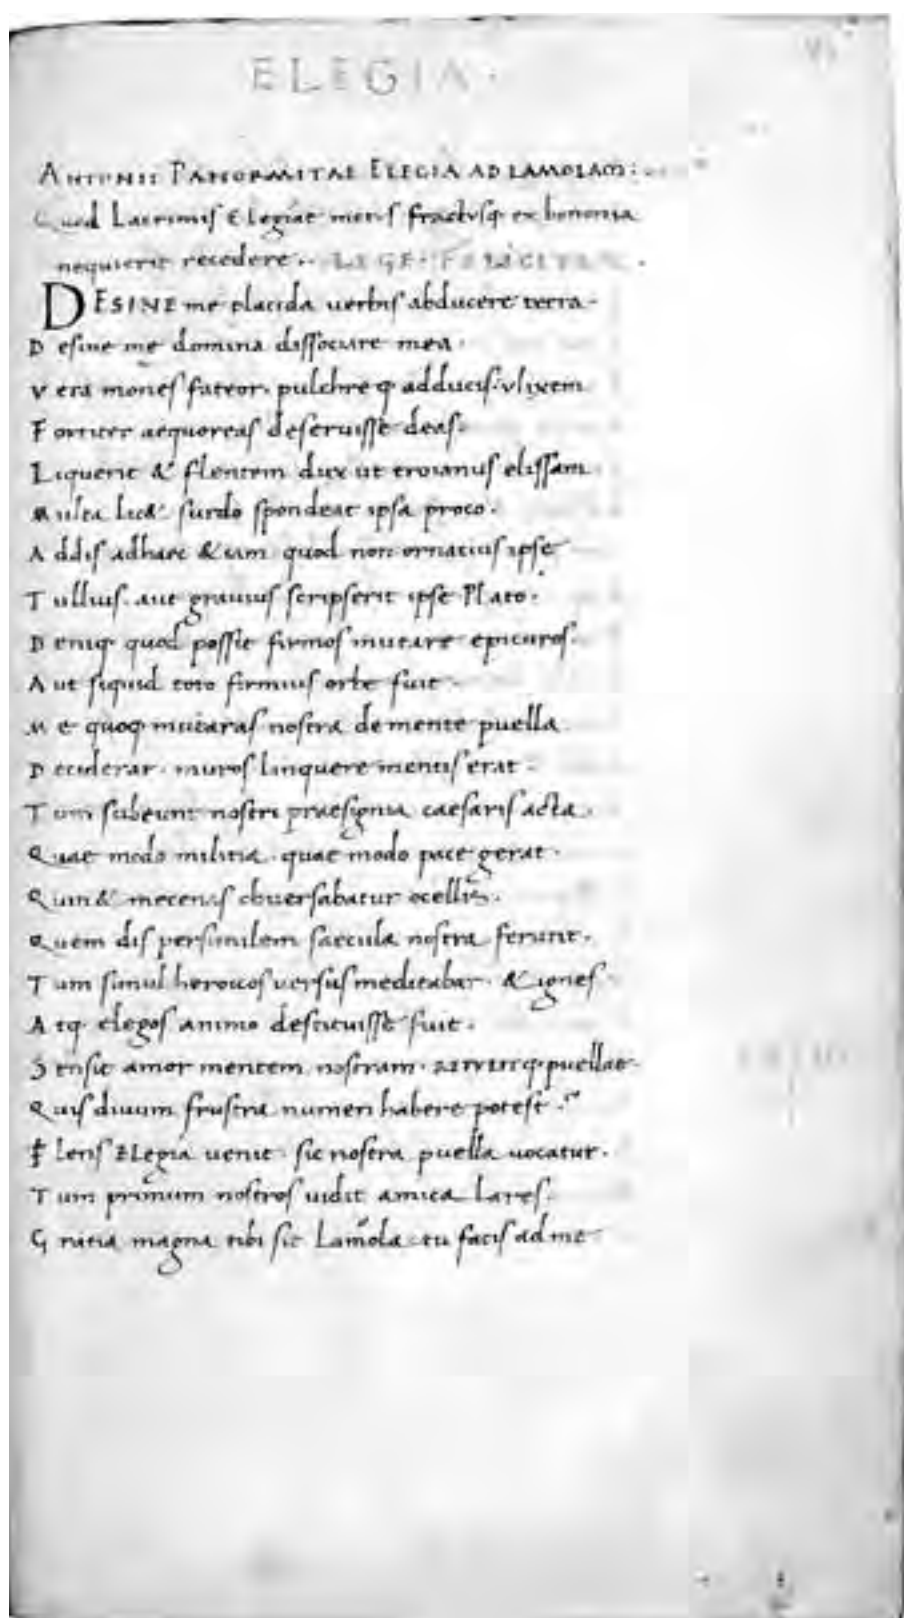 ELEGIA ·
ANTONII PANORMITAE ELEGIA AD LAMOLAM :
Quod Lacrimis Elegiae motus fractusq; ex bononia
nequierit recedere .. LEGE · FELICITER ·
DESINE me placida uerbis abducere terra ·
Desine me domina dissociare mea ·
Vera mones fateor · pulchre q; adducis · vlixem
Fortiter aequoreas deseruisse deas ·
Liquerit & flentem dux ut troianus elissam ·
Multa lic& surdo spondeat ipsa proco ·
Addis adhaec &iam quod non ornatius ipse
Tullius · aut grauius scripserit ipse Plato ·
Deniq; quod possit firmos mutare epicuros ·
Aut siquid toto firmius orbe fuit ·
Me quoq; mutaras nostra de mente puella
Deciderat · muros linquere mentis erat ·
Tum subeunt nostri praesignia caesaris acta ·
Quae modo militia · quae modo pace gerat ·
Quin & mecenas obuersabatur ocellis ·
Quem dis persimilem saecula nostra ferunt ·
Tum simul heroicos versus meditabar · & ignes
Atq; elegos animo destituisse fuit ·
Sensit amor mentem nostram · q; puellae ·
Quis diuum frustra numen habere potest ·
Flens Elegia uenit · sic nostra puella uocatur ·
Tum primum nostros uidit amica Lares ·
Gratia magna tibi sit Lamola · tu facis ad me